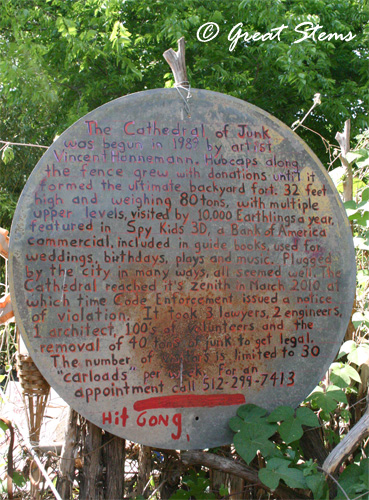 © Great Stems
The Cathedral of Junk
was begun in 1989 by artist
Vincent Hannemann. Hubcaps along
the fence grew with donations until it
formed the ultimate backyard fort. 32 feet
high and weighing 80 tons, with multiple
upper levels, visited by 10,000 Earthlings a year,
featured in Spy Kids 3D, a Bank of America
commercial, included in guide books, used for
weddings, birthdays, plays and music. Plugged
by the city in many ways, all seemed well. The
Cathedral reached it's zenith in March 2010 at
which time Code Enforcement issued a notice
of violation. It took 3 lawyers, 2 engineers,
1 architect, 100's of volunteers and the
removal of 40 tons of junk to get legal.
The number of is limited to 30
"carloads" per week. For an
appointment call 512-299-7413
Hit Gong,